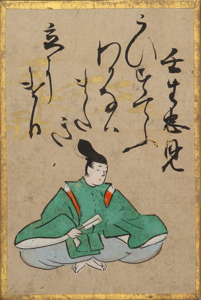 壬生忠見
こひすてふ
わかなは
またき
立にけり